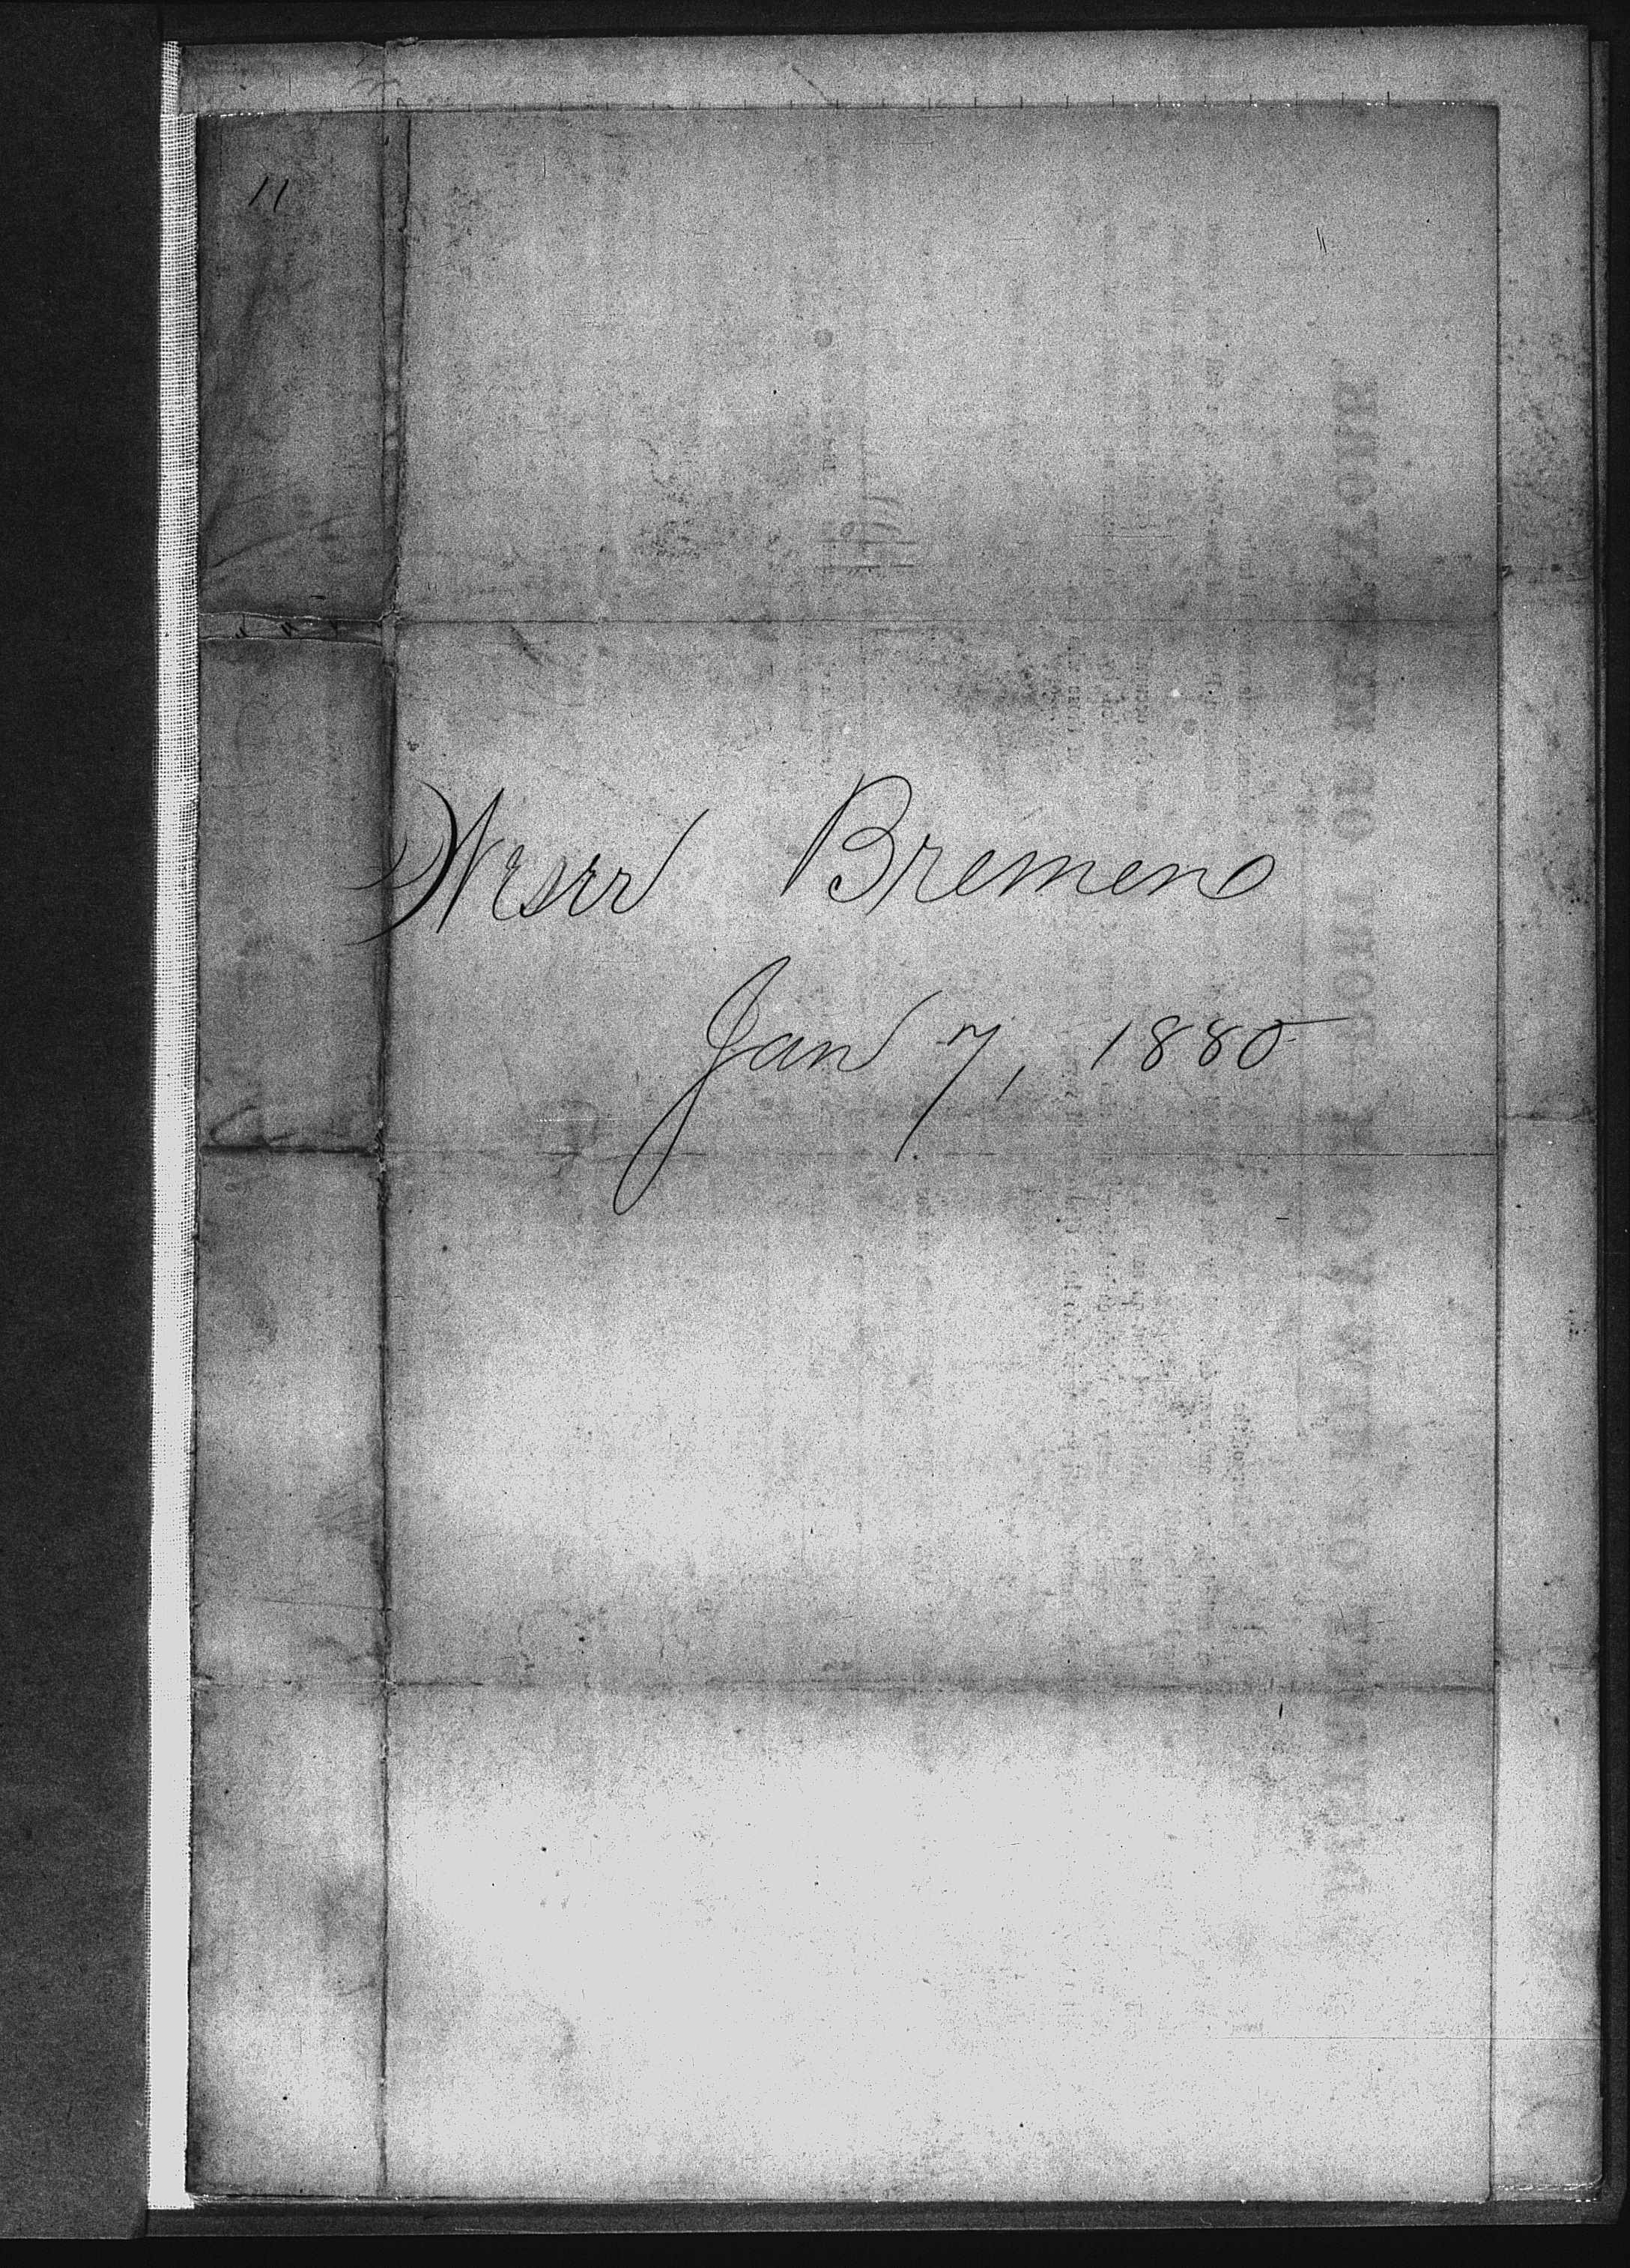 11
Weser Bremen
Jan 7, 1880